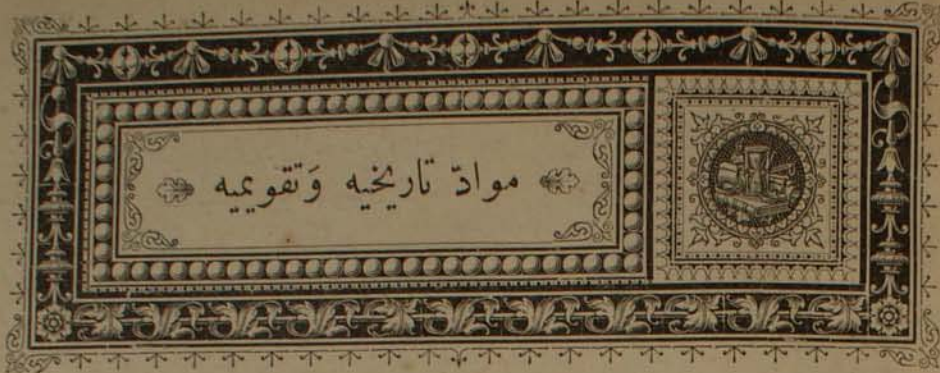 موادّ تاريخيه وَتقويميه